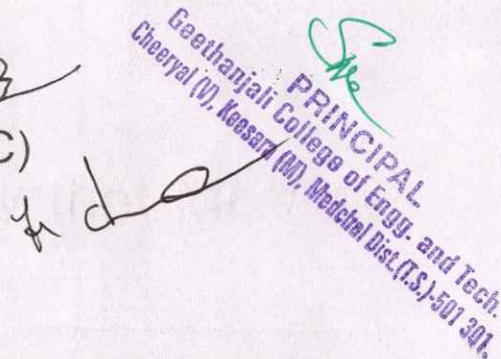 C)
PRINCIPAL
Geethanjali College of Engg. and Tech.
Cheeryal (V), Keesara (M), Medchal Dist.(T.S.)-501 301.